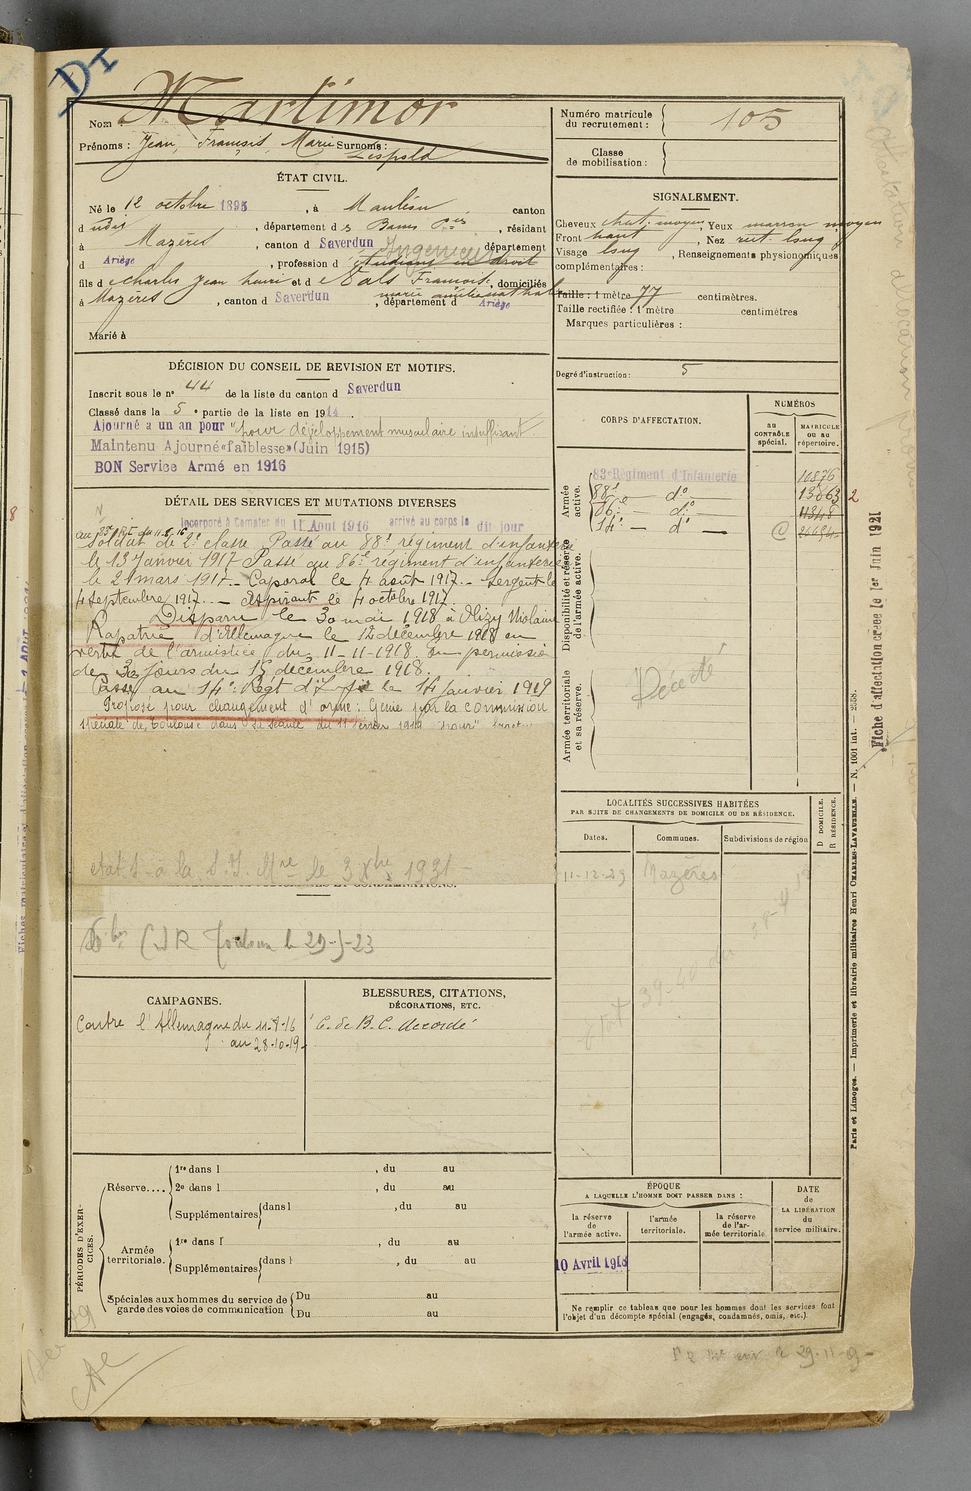 DI
Nom : Martimor
Prénoms : Jean, François, Marie Surnoms :
Léopold
ÉTAT CIVIL.
Né le 12 octobre 1895, à Mauléon canton
d udit, département des Basses Pées, résidant
à Mazères, canton d Saverdun département
Ingenieur
d Ariège, profession d étudiant en droit
fils d e Charles Jean henri et d e Eals Françoise, domiciliés
marie amélie nathalie
à Mazères, canton d Saverdun, département d Ariège
Marié à
DÉCISION DU CONSEIL DE REVISION ET MOTIFS.
Inscrit sous le n° 44 de la liste du canton d Saverdun
Classé dans la 5e partie de la liste en 1914.
Ajourné à un an pour "pour développement musculaire insuffisant
Maintenu Ajourné «faiblesse» (Juin 1915)
BON Service Armé en 1916
DÉTAIL DES SERVICES ET MUTATIONS DIVERSES
Incorporé à Compter du 11 Aout 1916 arrivé au corps le dit jour
au 83e RI du 11-8-16
soldat de 2e classe Passé au 88e régiment d'infanterie
le 13 Janvier 1917 Passé au 86e régiment d'infanterie
le 21 mars 1917. Caporal le 4 août 1917. Sergent le
4 Septembre 1917. Aspirant le 4 octobre 1917
Disparu le 30 mai 1918 à Olizy Violaine
Rapatrié d'Allemagne le 12 décembre 1918 en
vertu de l'armistice du 11-11-1918. En permission
de 30 jours du 15 décembre 1918.
Passé au 14e Régt d'Inf ie le 14 Janvier 1919
Proposé pour changement d'arme : Génie par la commission
de Toulouse dans sa séance du 11 février 1919 pour
etat S-a la S.I. Mre le 3 Xbre 1931
ET CONDAMNATIONS.
CDR Toulouse le 29-5-23
CAMPAGNES.
Contre l'Allemagne du 11-8-16
au 28-10-19
BLESSURES, CITATIONS,
DÉCORATIONS, ETC.
C. de B. C. accordé
PÉRIODES D'EXERCICES.
Réserve....
1re dans l , du au
2e dans l , du au
Supplémentaires dans l , du au
Armée territoriale.
1re dans l , du au
Supplémentaires dans l , du au
Spéciales aux hommes du service de garde des voies de communication
Du au
Du au
Numéro matricule du recrutement : 105
Classe de mobilisation :
SIGNALEMENT.
Cheveux chat. moyen, Yeux marron moyen
Front haut, Nez rect. long
Visage long, Renseignements physionomiques
complémentaires :
Taille : 1 mètre 77 centimètres.
Taille rectifiée : 1 mètre centimètres
Marques particulières :
Degré d'instruction : 5
CORPS D'AFFECTATION.
NUMÉROS
au CONTRÔLE spécial.
MATRICULE ou au répertoire.
Armée active.
83e Régiment d'Infanterie 10876
88e — do — 13863 2
86e — do — 11348
14e — do —
Disponibilité et réserve de l'armée active.
Armée territoriale et sa réserve.
Décédé
LOCALITÉS SUCCESSIVES HABITÉES
PAR SUITE DE CHANGEMENTS DE DOMICILE OU DE RÉSIDENCE.
Dates. Communes. Subdivisions de région
D DOMICILE.
R RÉSIDENCE.
11-12-29 Mazères
ÉPOQUE
A LAQUELLE L'HOMME DOIT PASSER DANS :
la réserve de l'armée active.
l'armée territoriale.
la réserve de l'armée territoriale.
DATE
de
LA LIBÉRATION
du
service militaire.
10 Avril 1918
Ne remplir ce tableau que pour les hommes dont les services font
l'objet d'un décompte spécial (engagés, condamnés, omis, etc.).
Fiche d'affectation créée le 1er Juin 1921
Paris et Limoges. — Imprimerie et librairie militaires Henri CHARLES-LAVAUZELLE. — N. 1001 int. — 2558.